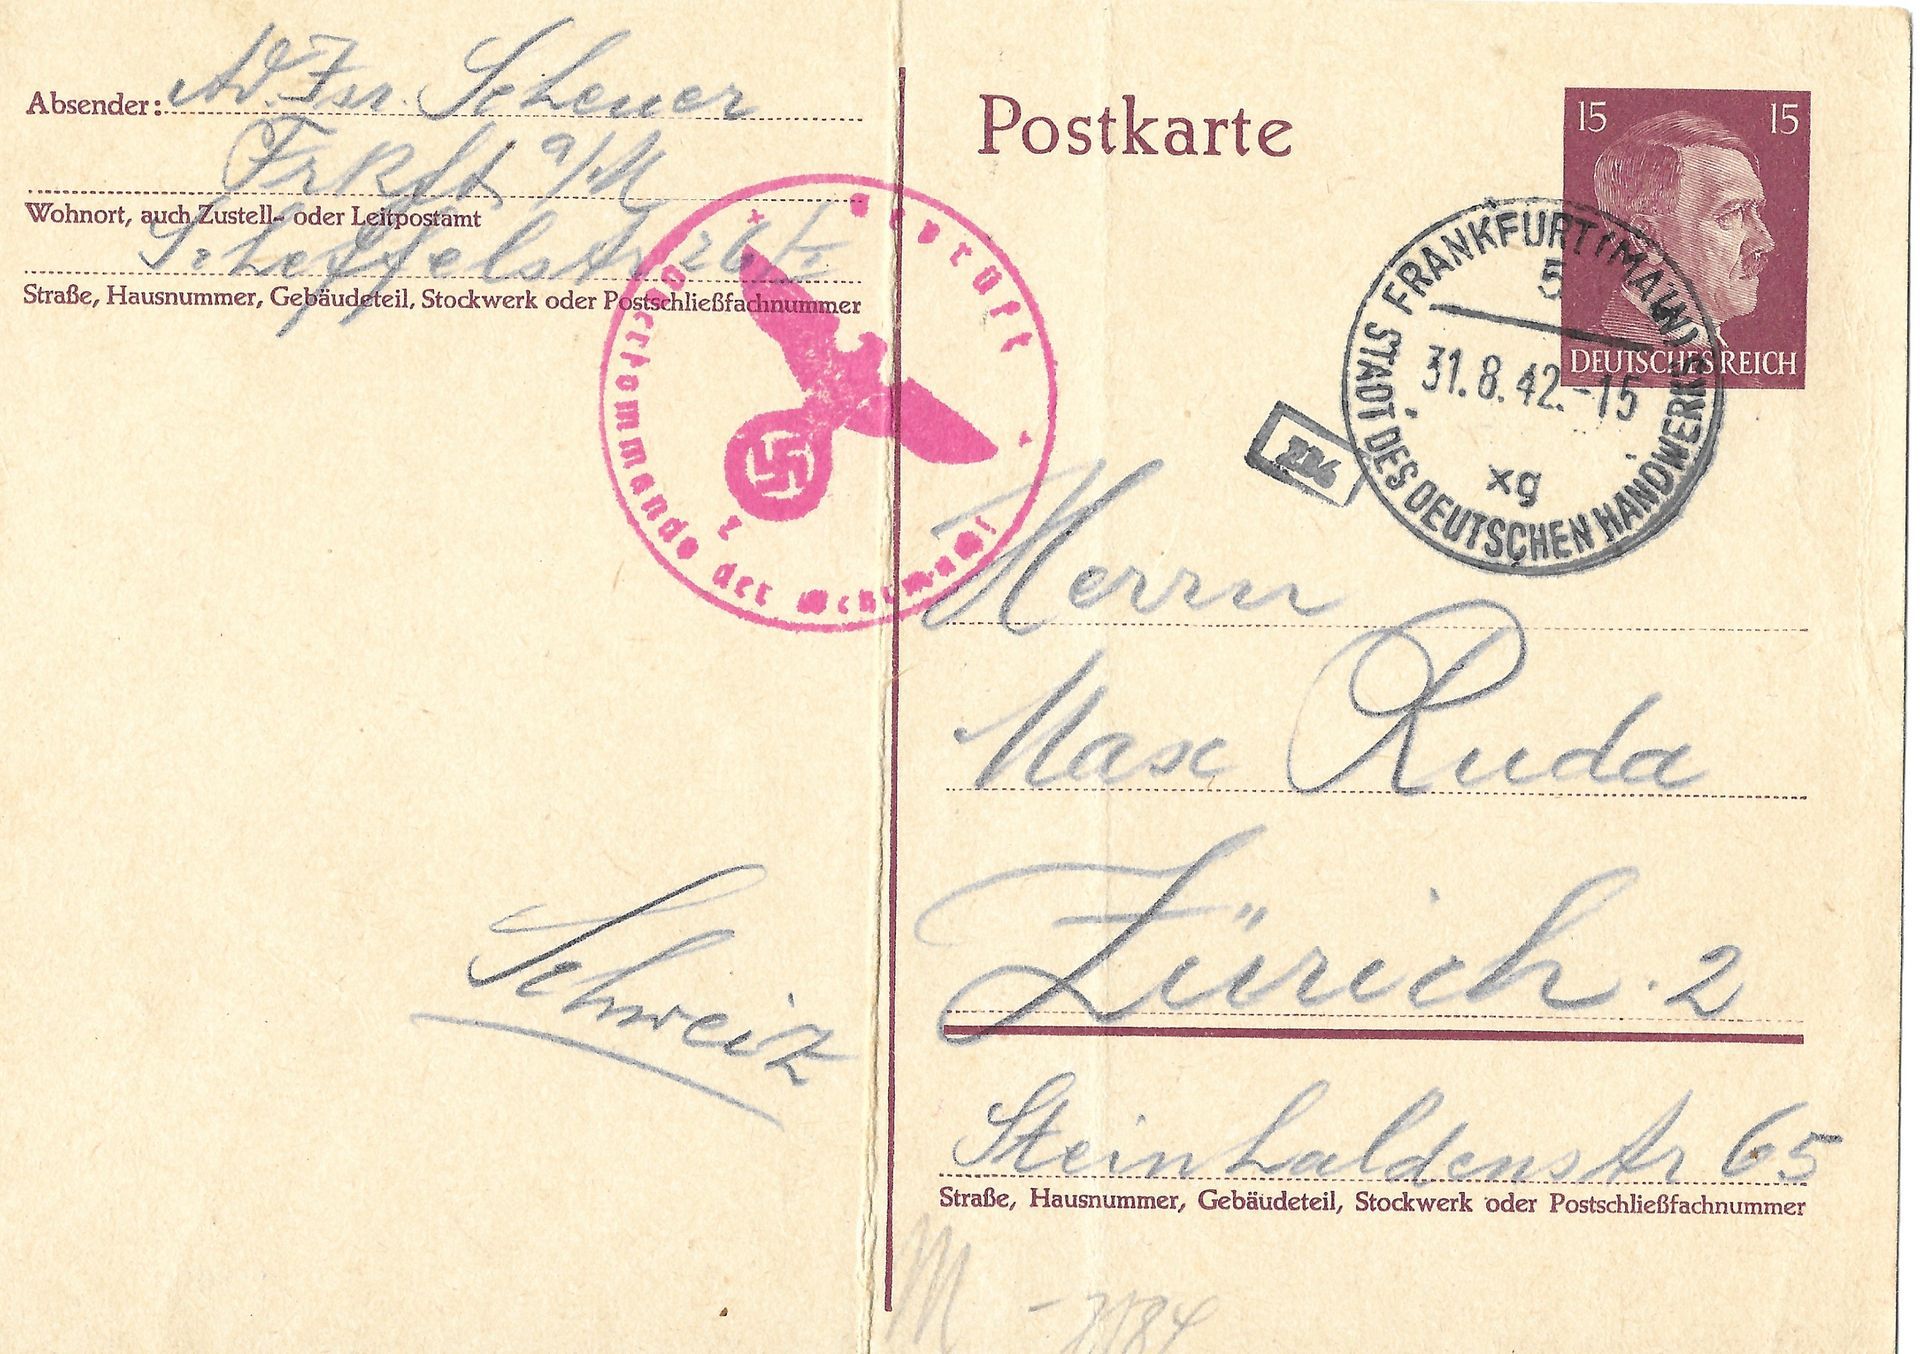 Absender: Ad. Isr. Scheuer
Frkft a/M
Wohnort, auch Zustell- oder Leitpostamt
Scheffelstr 26 I
Straße, Hausnummer, Gebäudeteil, Stockwerk oder Postschließfachnummer
Postkarte
15 15
DEUTSCHES REICH
FRANKFURT (MAIN)
5
31.8.42.-15
xg
STADT DES DEUTSCHEN HANDWERKS
Geprüft
Oberkommando der Wehrmacht
Herrn
Max Ruda
Zürich.2
Schweiz
Steinhaldenstr 65
Straße, Hausnummer, Gebäudeteil, Stockwerk oder Postschließfachnummer
M